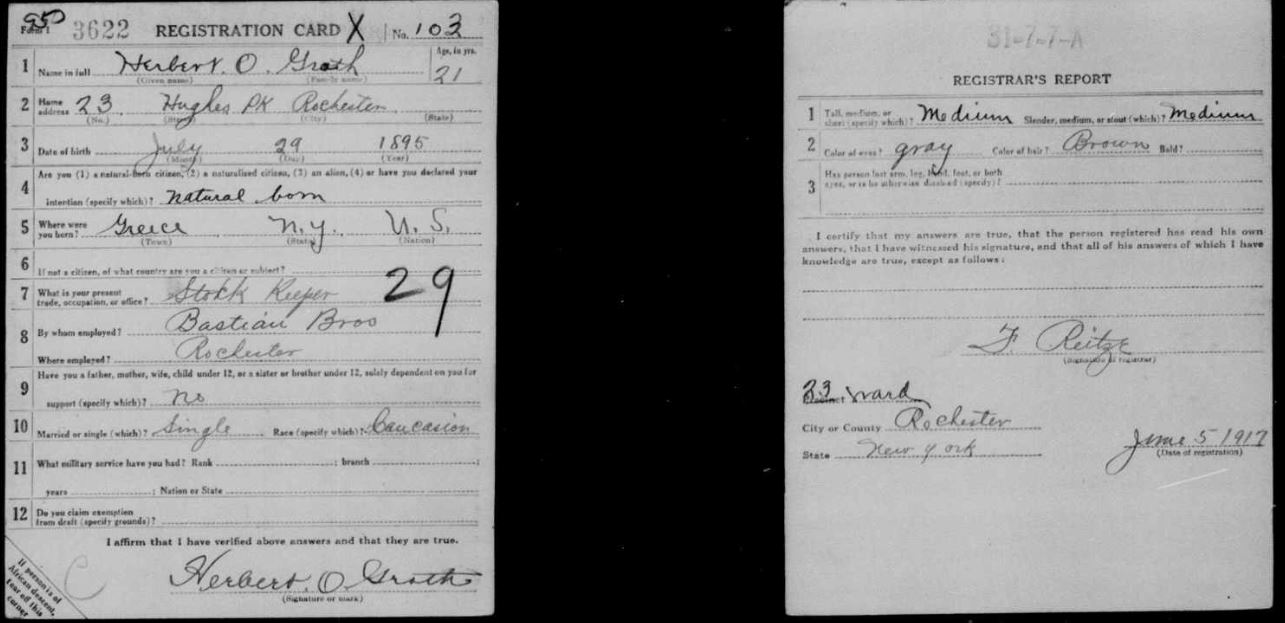 950
Form 1 3622 REGISTRATION CARD X No. 103
1 Name in full Herbert. O. Groth Age, in yrs. 21
(Given name) (Family name)
2 Home address 23 Hughes PK Rochester
(No.) (Street) (City) (State)
3 Date of birth July 29 1895
(Month) (Day) (Year)
4 Are you (1) a natural-born citizen, (2) a naturalized citizen, (3) an alien, (4) or have you declared your
intention (specify which)? natural born
5 Where were you born? Greece N.Y. U.S.
(Town) (State) (Nation)
6 If not a citizen, of what country are you a citizen or subject?
7 What is your present trade, occupation, or office? Stokk Keeper 29
8 By whom employed? Bastian Bros
Where employed? Rochester
9 Have you a father, mother, wife, child under 12, or a sister or brother under 12, solely dependent on you for
support (specify which)? no
10 Married or single (which)? Single Race (specify which)? Caucasion
11 What military service have you had? Rank ; branch ;
years ; Nation or State
12 Do you claim exemption from draft (specify grounds)?
I affirm that I have verified above answers and that they are true.
C
Herbert. O. Groth
(Signature or mark)
If person is of
African descent,
tear off this
corner
31-7-7-A
REGISTRAR'S REPORT
1 Tall, medium, or short (specify which)? Medium Slender, medium, or stout (which)? Medium
2 Color of eyes? gray Color of hair? Brown Bald?
3 Has person lost arm, leg, hand, foot, or both
eyes, or is he otherwise disabled (specify)?
I certify that my answers are true, that the person registered has read his own
answers, that I have witnessed his signature, and that all of his answers of which I have
knowledge are true, except as follows:
F. Reitze
(Signature of registrar)
23 ward
Precinct
City or County Rochester
State New York
June 5 1917
(Date of registration)